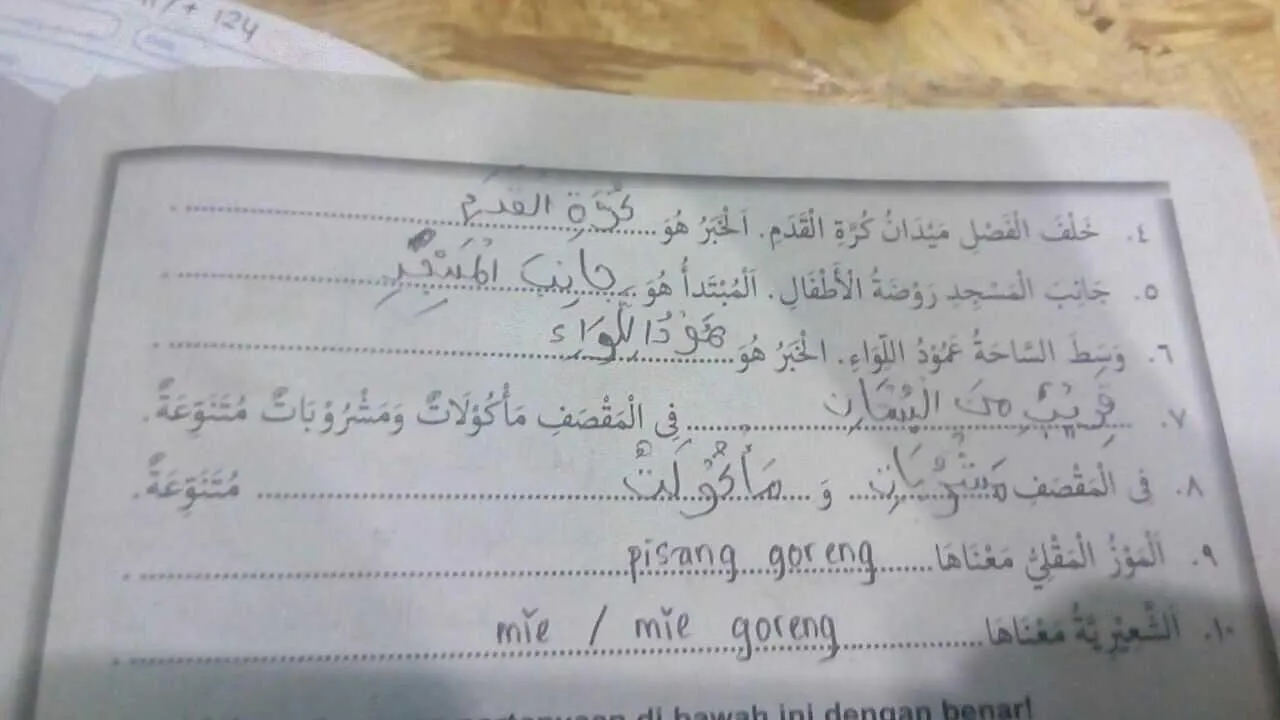 + 124
٤. خَلْفَ الْفَصْلِ مَيْدَانُ كُرَّةِ الْقَدَمِ. اَلْخَبَرُ هُوَ ..... كُرَّةِ القَدَمِ
٥. جَانِبَ الْمَسْجِدِ رَوْضَةُ الْأَطْفَالِ. اَلْمُبْتَدَأُ هُوَ ..... جانِبَ المَسْجِدِ
٦. وَسِطَ السَّاحَةُ عَمُوْدُ اللِّوَاءِ. الْخَبَرُ هُوَ ..... هَوْدُ اللِّوَاءِ
٧. قَرِيْبٌ مِنَ البُسْتَانِ ..... فِى الْمَقْصَفِ مَأْكُوْلَاتٌ وَمَشْرُوْبَاتٌ مُتَنَوِّعَةٌ.
٨. فِى الْمَقْصَفِ مَشْرُوْبَاتٌ وَ مَأْكُوْلَتٌ ..... مُتَنَوِّعَةٌ.
٩. اَلْمَوْزُ الْمَقْلِيُّ مَعْنَاهَا ..... pisang goreng
١٠. اَلشَّعِيْرِيَّةُ مَعْنَاهَا ..... mie / mie goreng
di bawah ini dengan benar!